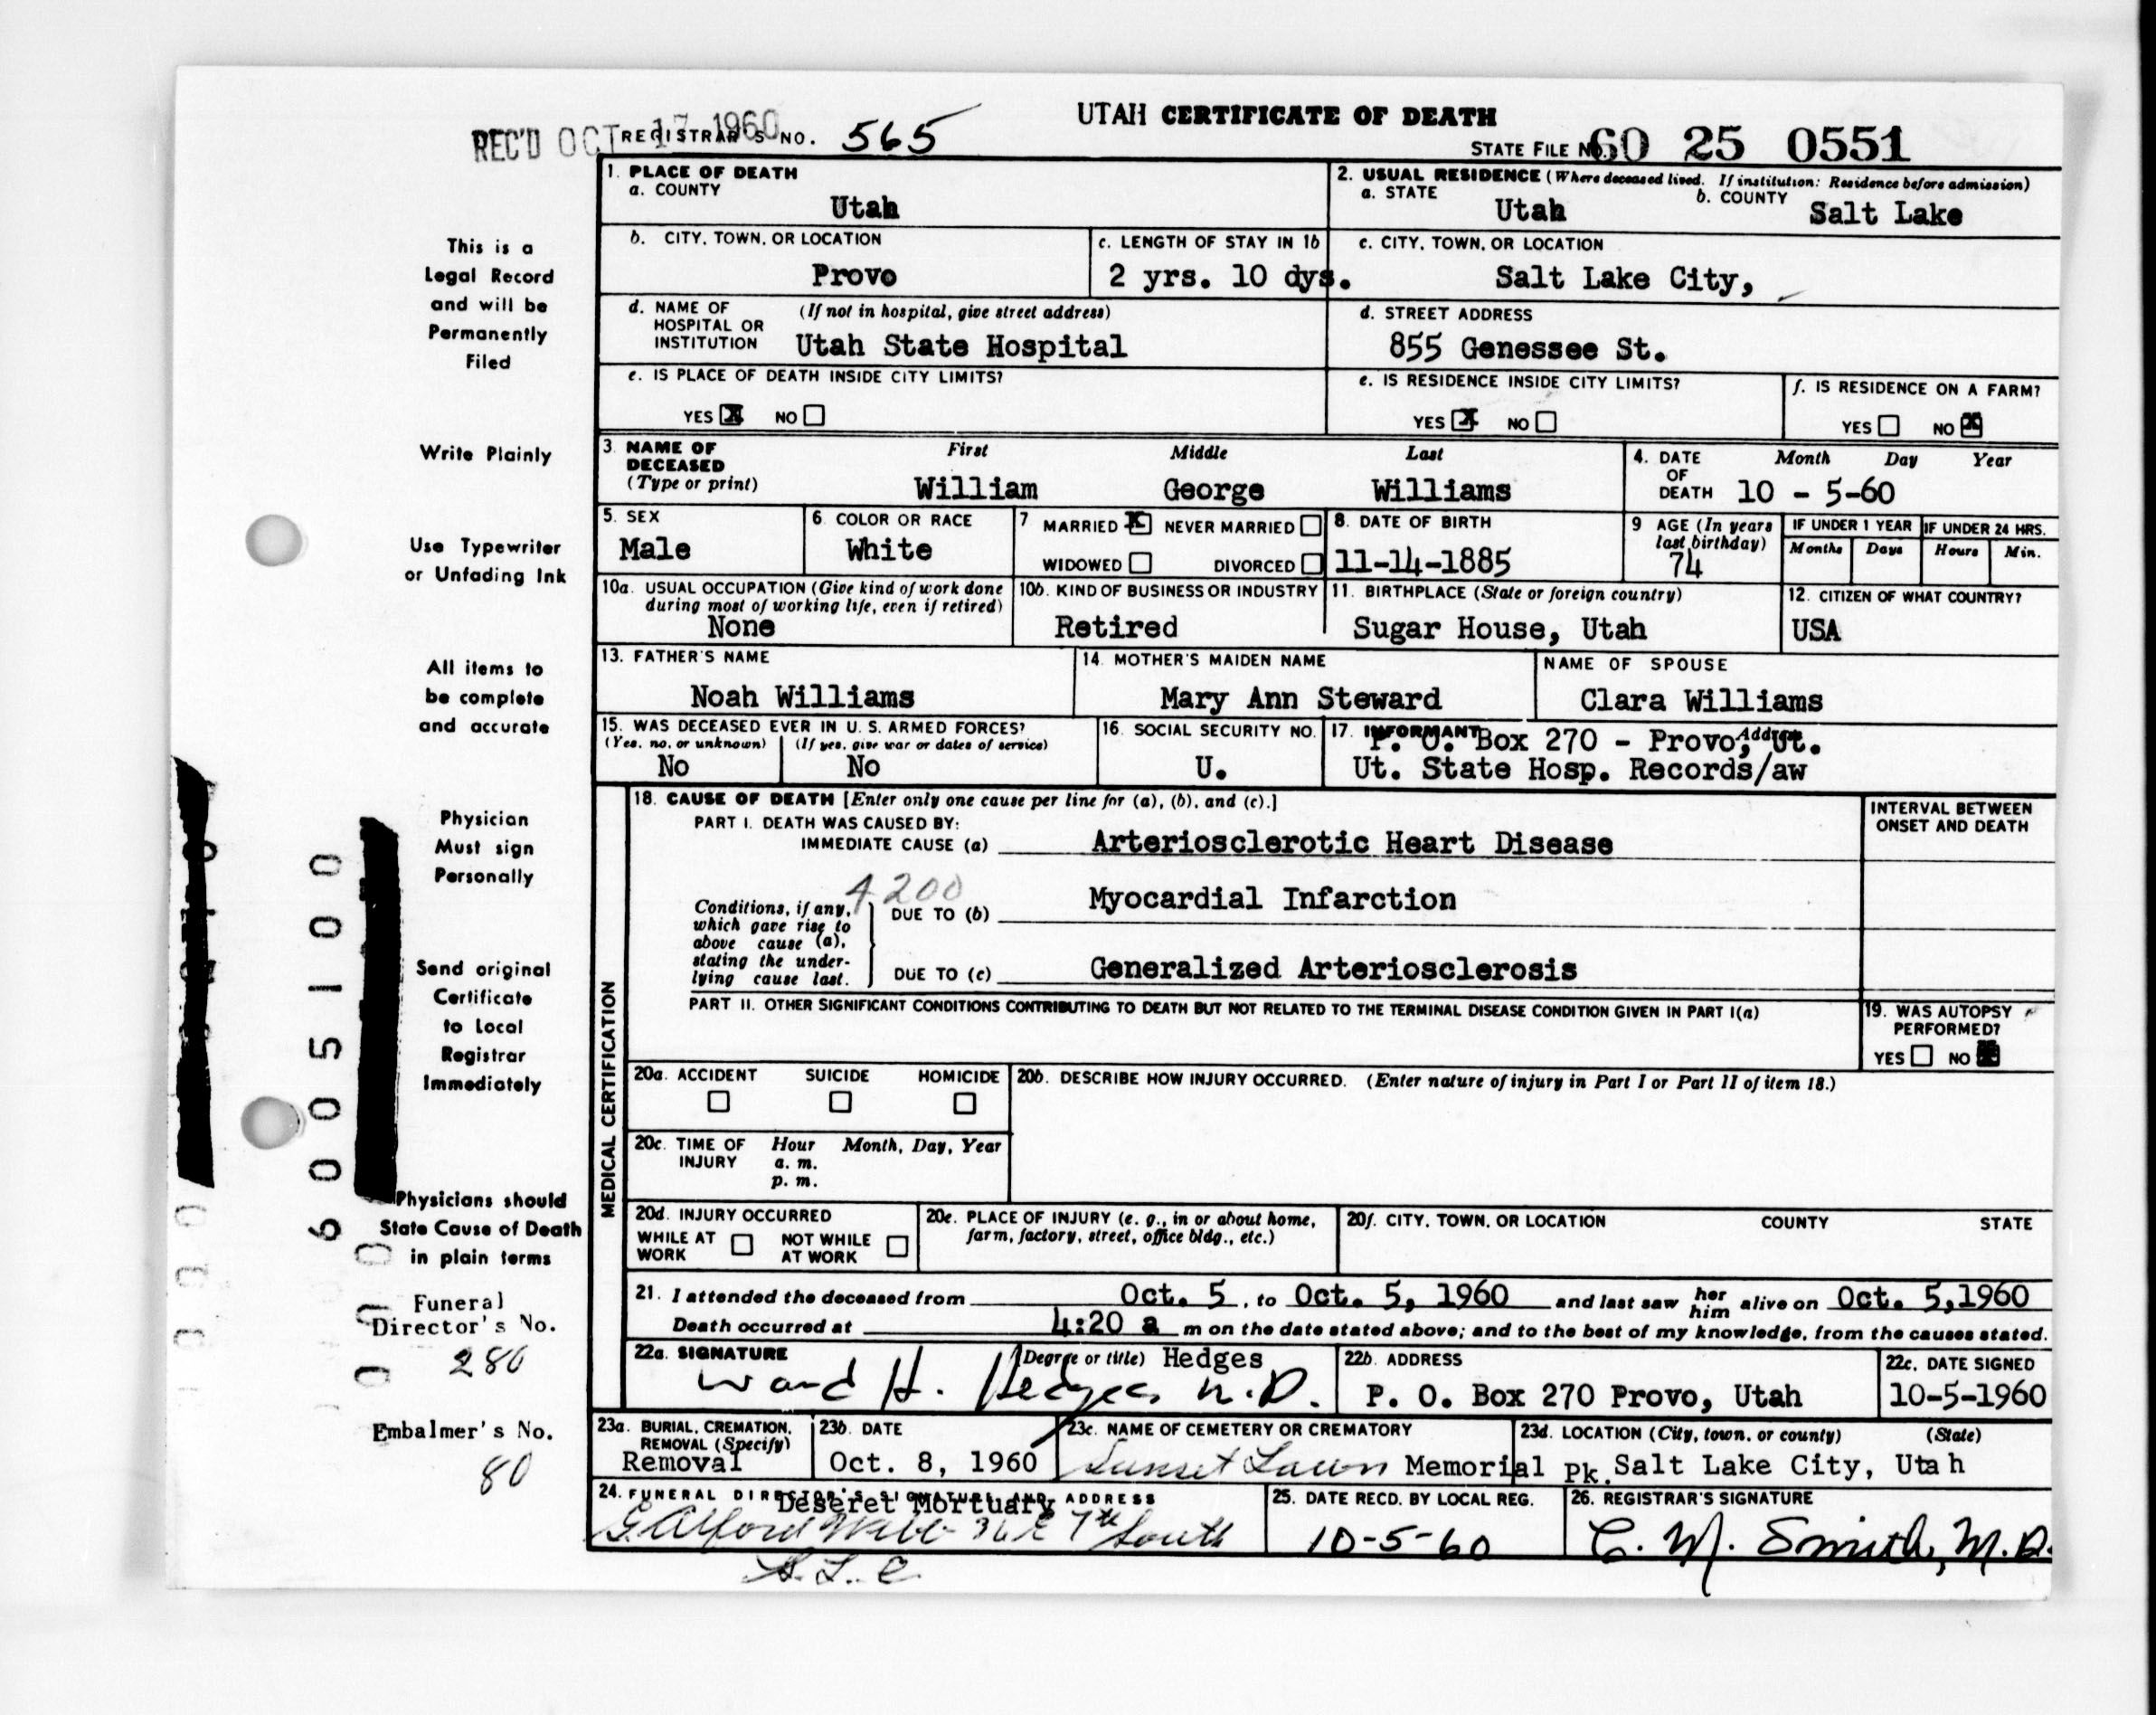 UTAH CERTIFICATE OF DEATH
REC'D OCT 17 1960 REGISTRAR'S NO. 565
STATE FILE NO. 60 25 0551
1. PLACE OF DEATH
a. COUNTY
Utah
2. USUAL RESIDENCE (Where deceased lived. If institution: Residence before admission)
a. STATE Utah b. COUNTY Salt Lake
b. CITY, TOWN, OR LOCATION
Provo
c. LENGTH OF STAY IN 1b
2 yrs. 10 dys.
c. CITY, TOWN, OR LOCATION
Salt Lake City,
d. NAME OF HOSPITAL OR INSTITUTION (If not in hospital, give street address)
Utah State Hospital
d. STREET ADDRESS
855 Genessee St.
e. IS PLACE OF DEATH INSIDE CITY LIMITS?
YES X NO
e. IS RESIDENCE INSIDE CITY LIMITS?
YES X NO
f. IS RESIDENCE ON A FARM?
YES NO X
3. NAME OF DECEASED (Type or print)
First Middle Last
William George Williams
4. DATE OF DEATH Month Day Year
10 - 5-60
5. SEX
Male
6. COLOR OR RACE
White
7 MARRIED X NEVER MARRIED
WIDOWED DIVORCED
8. DATE OF BIRTH
11-14-1885
9 AGE (In years last birthday)
74
IF UNDER 1 YEAR IF UNDER 24 HRS.
Months Days Hours Min.
10a. USUAL OCCUPATION (Give kind of work done during most of working life, even if retired)
None
10b. KIND OF BUSINESS OR INDUSTRY
Retired
11. BIRTHPLACE (State or foreign country)
Sugar House, Utah
12. CITIZEN OF WHAT COUNTRY?
USA
13. FATHER'S NAME
Noah Williams
14. MOTHER'S MAIDEN NAME
Mary Ann Steward
NAME OF SPOUSE
Clara Williams
15. WAS DECEASED EVER IN U. S. ARMED FORCES?
(Yes, no, or unknown) (If yes, give war or dates of service)
No No
16. SOCIAL SECURITY NO.
U.
17. INFORMANT Address
P. O. Box 270 - Provo, Ut.
Ut. State Hosp. Records/aw
MEDICAL CERTIFICATION
18. CAUSE OF DEATH [Enter only one cause per line for (a), (b), and (c).]
PART I. DEATH WAS CAUSED BY:
IMMEDIATE CAUSE (a) Arteriosclerotic Heart Disease
4200
Conditions, if any, which gave rise to above cause (a), stating the underlying cause last.
DUE TO (b) Myocardial Infarction
DUE TO (c) Generalized Arteriosclerosis
INTERVAL BETWEEN ONSET AND DEATH
PART II. OTHER SIGNIFICANT CONDITIONS CONTRIBUTING TO DEATH BUT NOT RELATED TO THE TERMINAL DISEASE CONDITION GIVEN IN PART I(a)
19. WAS AUTOPSY PERFORMED?
YES NO X
20a. ACCIDENT SUICIDE HOMICIDE
20b. DESCRIBE HOW INJURY OCCURRED. (Enter nature of injury in Part I or Part II of item 18.)
20c. TIME OF INJURY Hour Month, Day, Year
a. m.
p. m.
20d. INJURY OCCURRED
WHILE AT WORK NOT WHILE AT WORK
20e. PLACE OF INJURY (e. g., in or about home, farm, factory, street, office bldg., etc.)
20f. CITY, TOWN, OR LOCATION COUNTY STATE
21. I attended the deceased from Oct. 5, to Oct. 5, 1960 and last saw her him alive on Oct. 5,1960
Death occurred at 4:20 a m on the date stated above; and to the best of my knowledge, from the causes stated.
22a. SIGNATURE (Degree or title) Hedges
Ward H. Hedges M.D.
22b. ADDRESS
P. O. Box 270 Provo, Utah
22c. DATE SIGNED
10-5-1960
23a. BURIAL, CREMATION, REMOVAL (Specify)
Removal
23b. DATE
Oct. 8, 1960
23c. NAME OF CEMETERY OR CREMATORY
Sunset Lawn Memorial Pk.
23d. LOCATION (City, town, or county) (State)
Salt Lake City, Utah
24. FUNERAL DIRECTOR'S SIGNATURE AND ADDRESS
Deseret Mortuary
G Alford Webb 36 E 7th South
S. L. C.
25. DATE RECD. BY LOCAL REG.
10-5-60
26. REGISTRAR'S SIGNATURE
C. M. Smith, M.D.
This is a
Legal Record
and will be
Permanently
Filed
Write Plainly
Use Typewriter
or Unfading Ink
All items to
be complete
and accurate
Physician
Must sign
Personally
Send original
Certificate
to Local
Registrar
Immediately
Physicians should
State Cause of Death
in plain terms
Funeral
Director's No.
280
Embalmer's No.
80
6005100